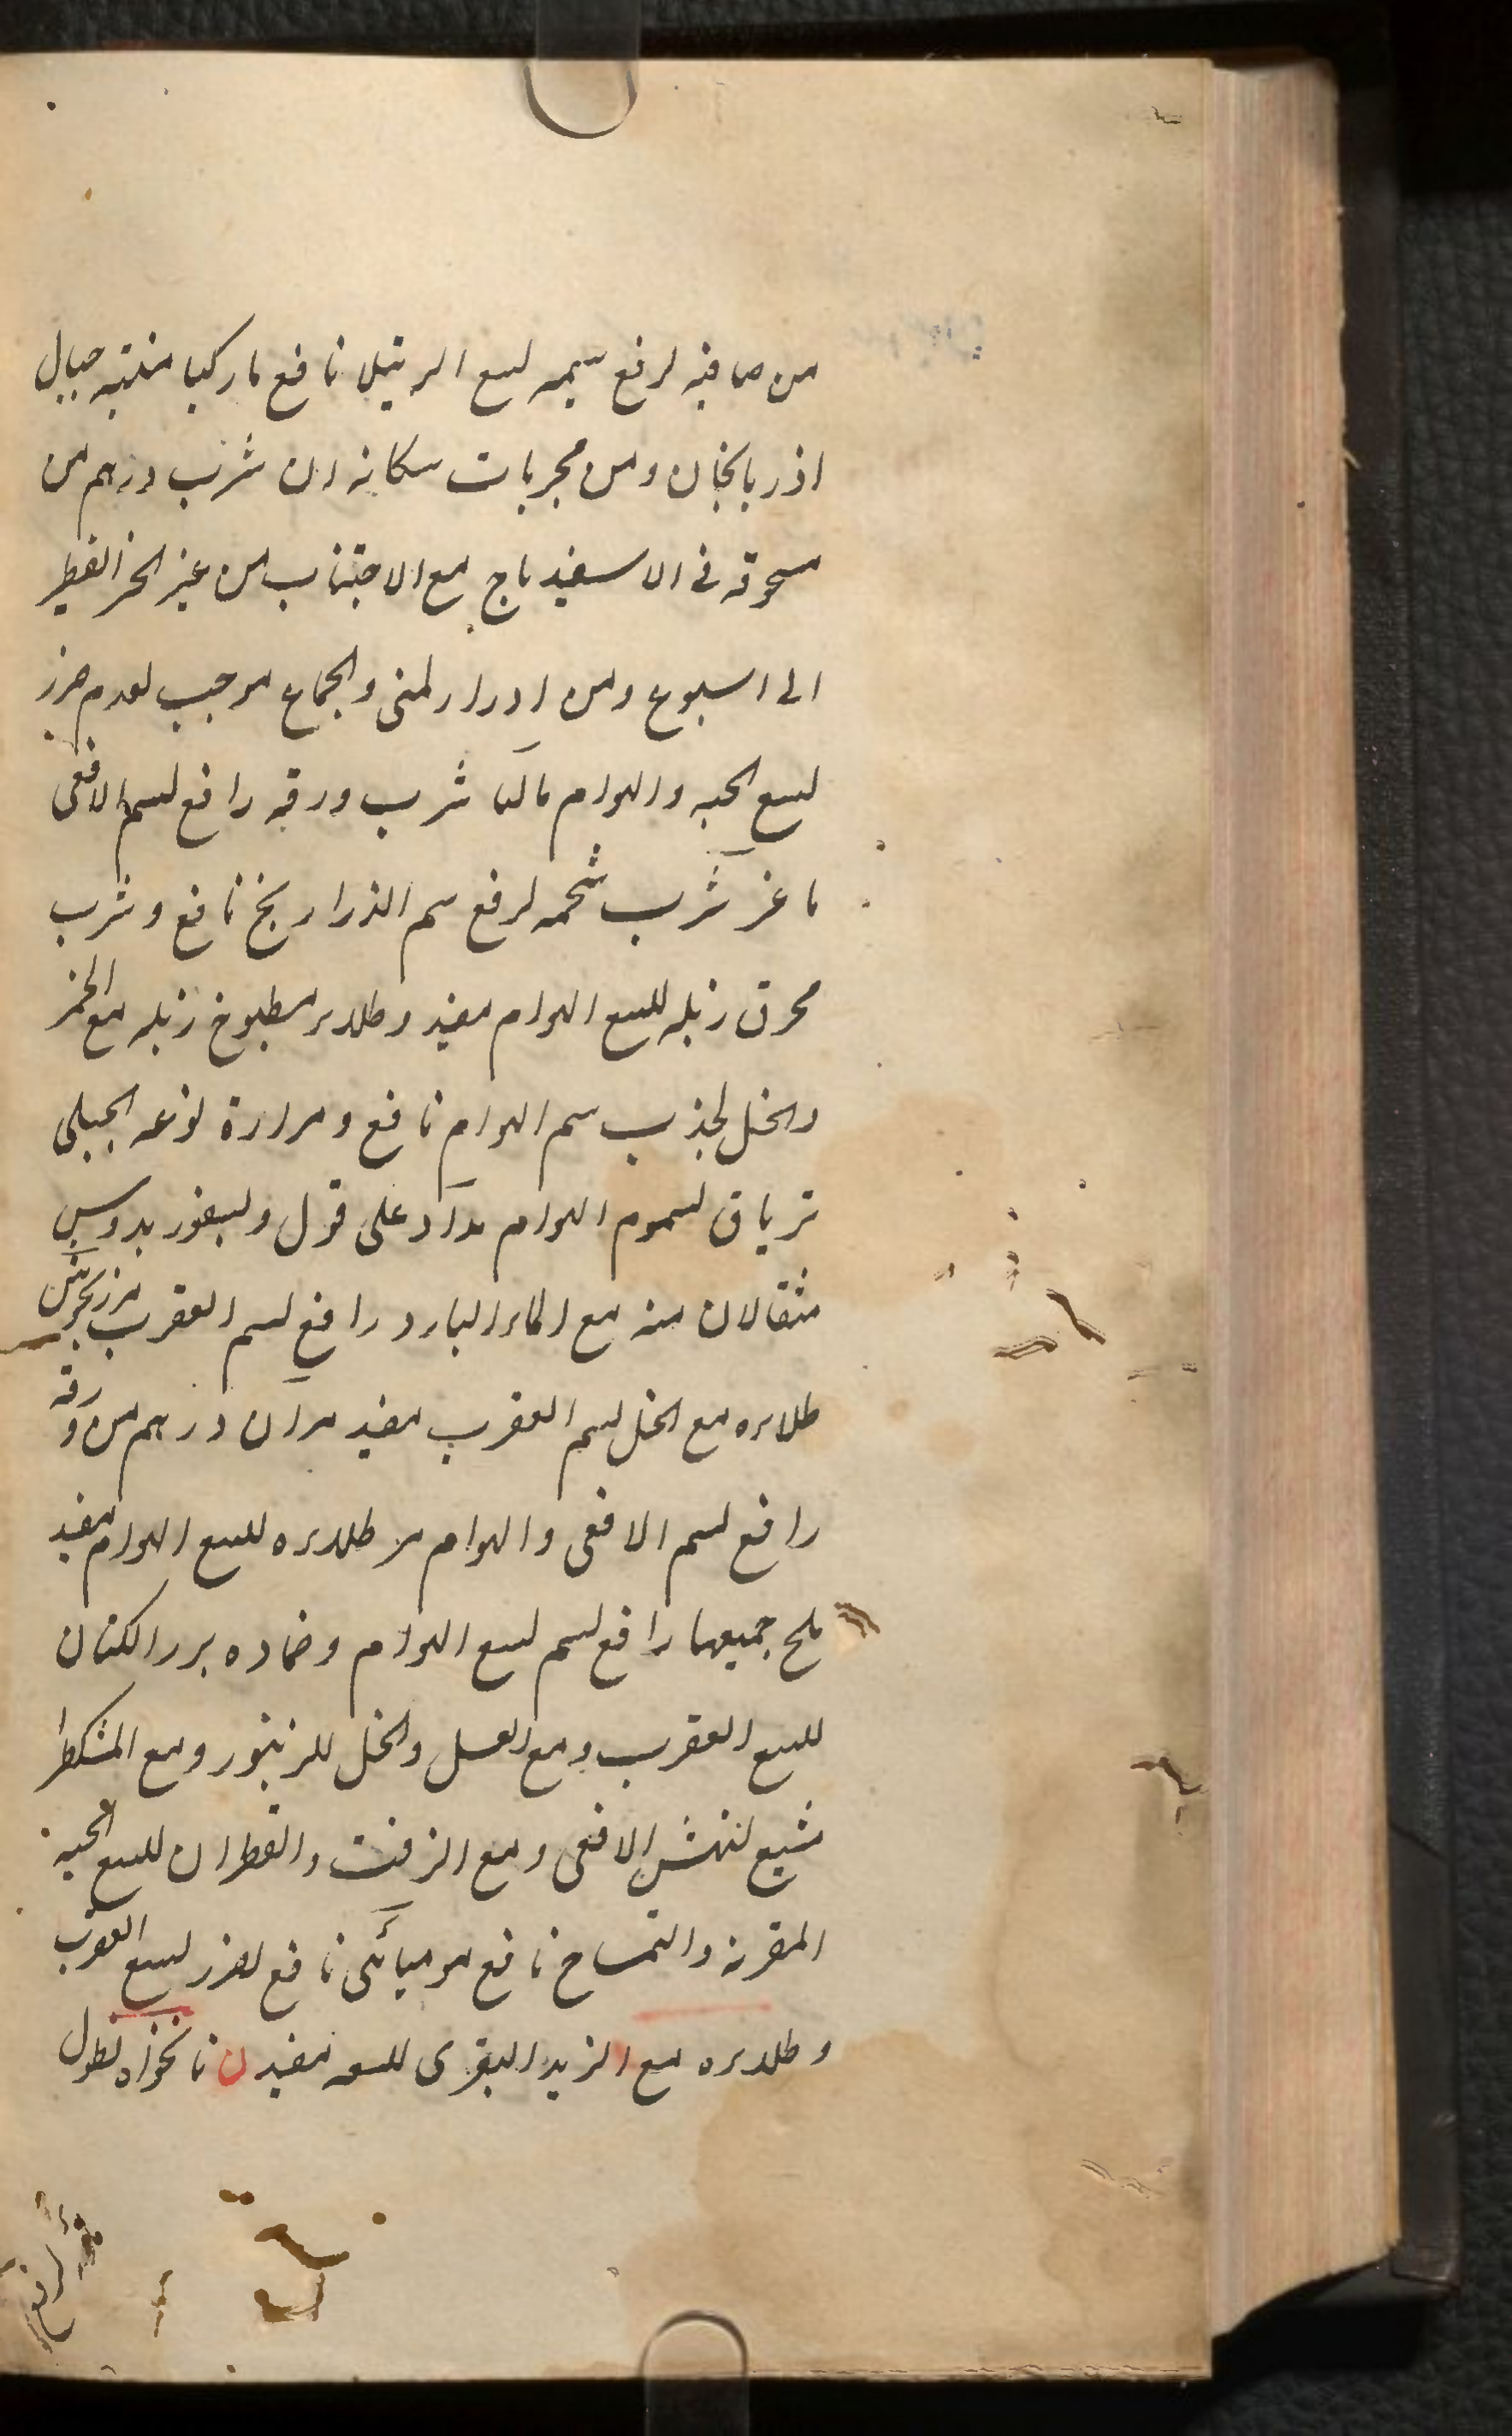 من صافيه لرفع سمه لسع الرتيلا نافع ماركيا منبته جبال
اذربايجان ومن مجربات سكانه ان شرب درهم من
مسحوقه فى الاسفيدباج مع الاجتناب من غير الخبز الفطير
الى اسبوع ومن ادرار المنى والجماع موجب لعدم ضرر
لسع الحيه والهوام شرب ورقه رافع لسم الافعى
ماعز شرب شحمه لرفع سم الذراريح نافع وشرب
محرق زبله للسع الهوام مفيد وطلاء مطبوخ زبله مع الخمر
والخل لجذب سم الهوام نافع ومرارة نوعه الجبلى
ترياق لسموم الهوام مداد على قول
مثقالان منه مع الماء البارد رافع لسم العقرب مرزنجوش
طلاءه مع الخل لسم العقرب مفيد مران درهم من ورقه
رافع لسم الافعى والهوام مر طلاءه للسع الهوام مفيد
ملح جميعها رافع لسم لسع الهوام وضماده ببزر الكتان
للسع العقرب ومع العسل والخل للزنبور ومع المشكطرا
مشيع لنهش الافعى ومع الزفت والقطران للسع الحية
المقرنه والتمساح نافع موميائى نافع لضرر لسع العقرب
وطلاءه مع الزبد البقرى للسعه مفيد ن نانخواه نطول